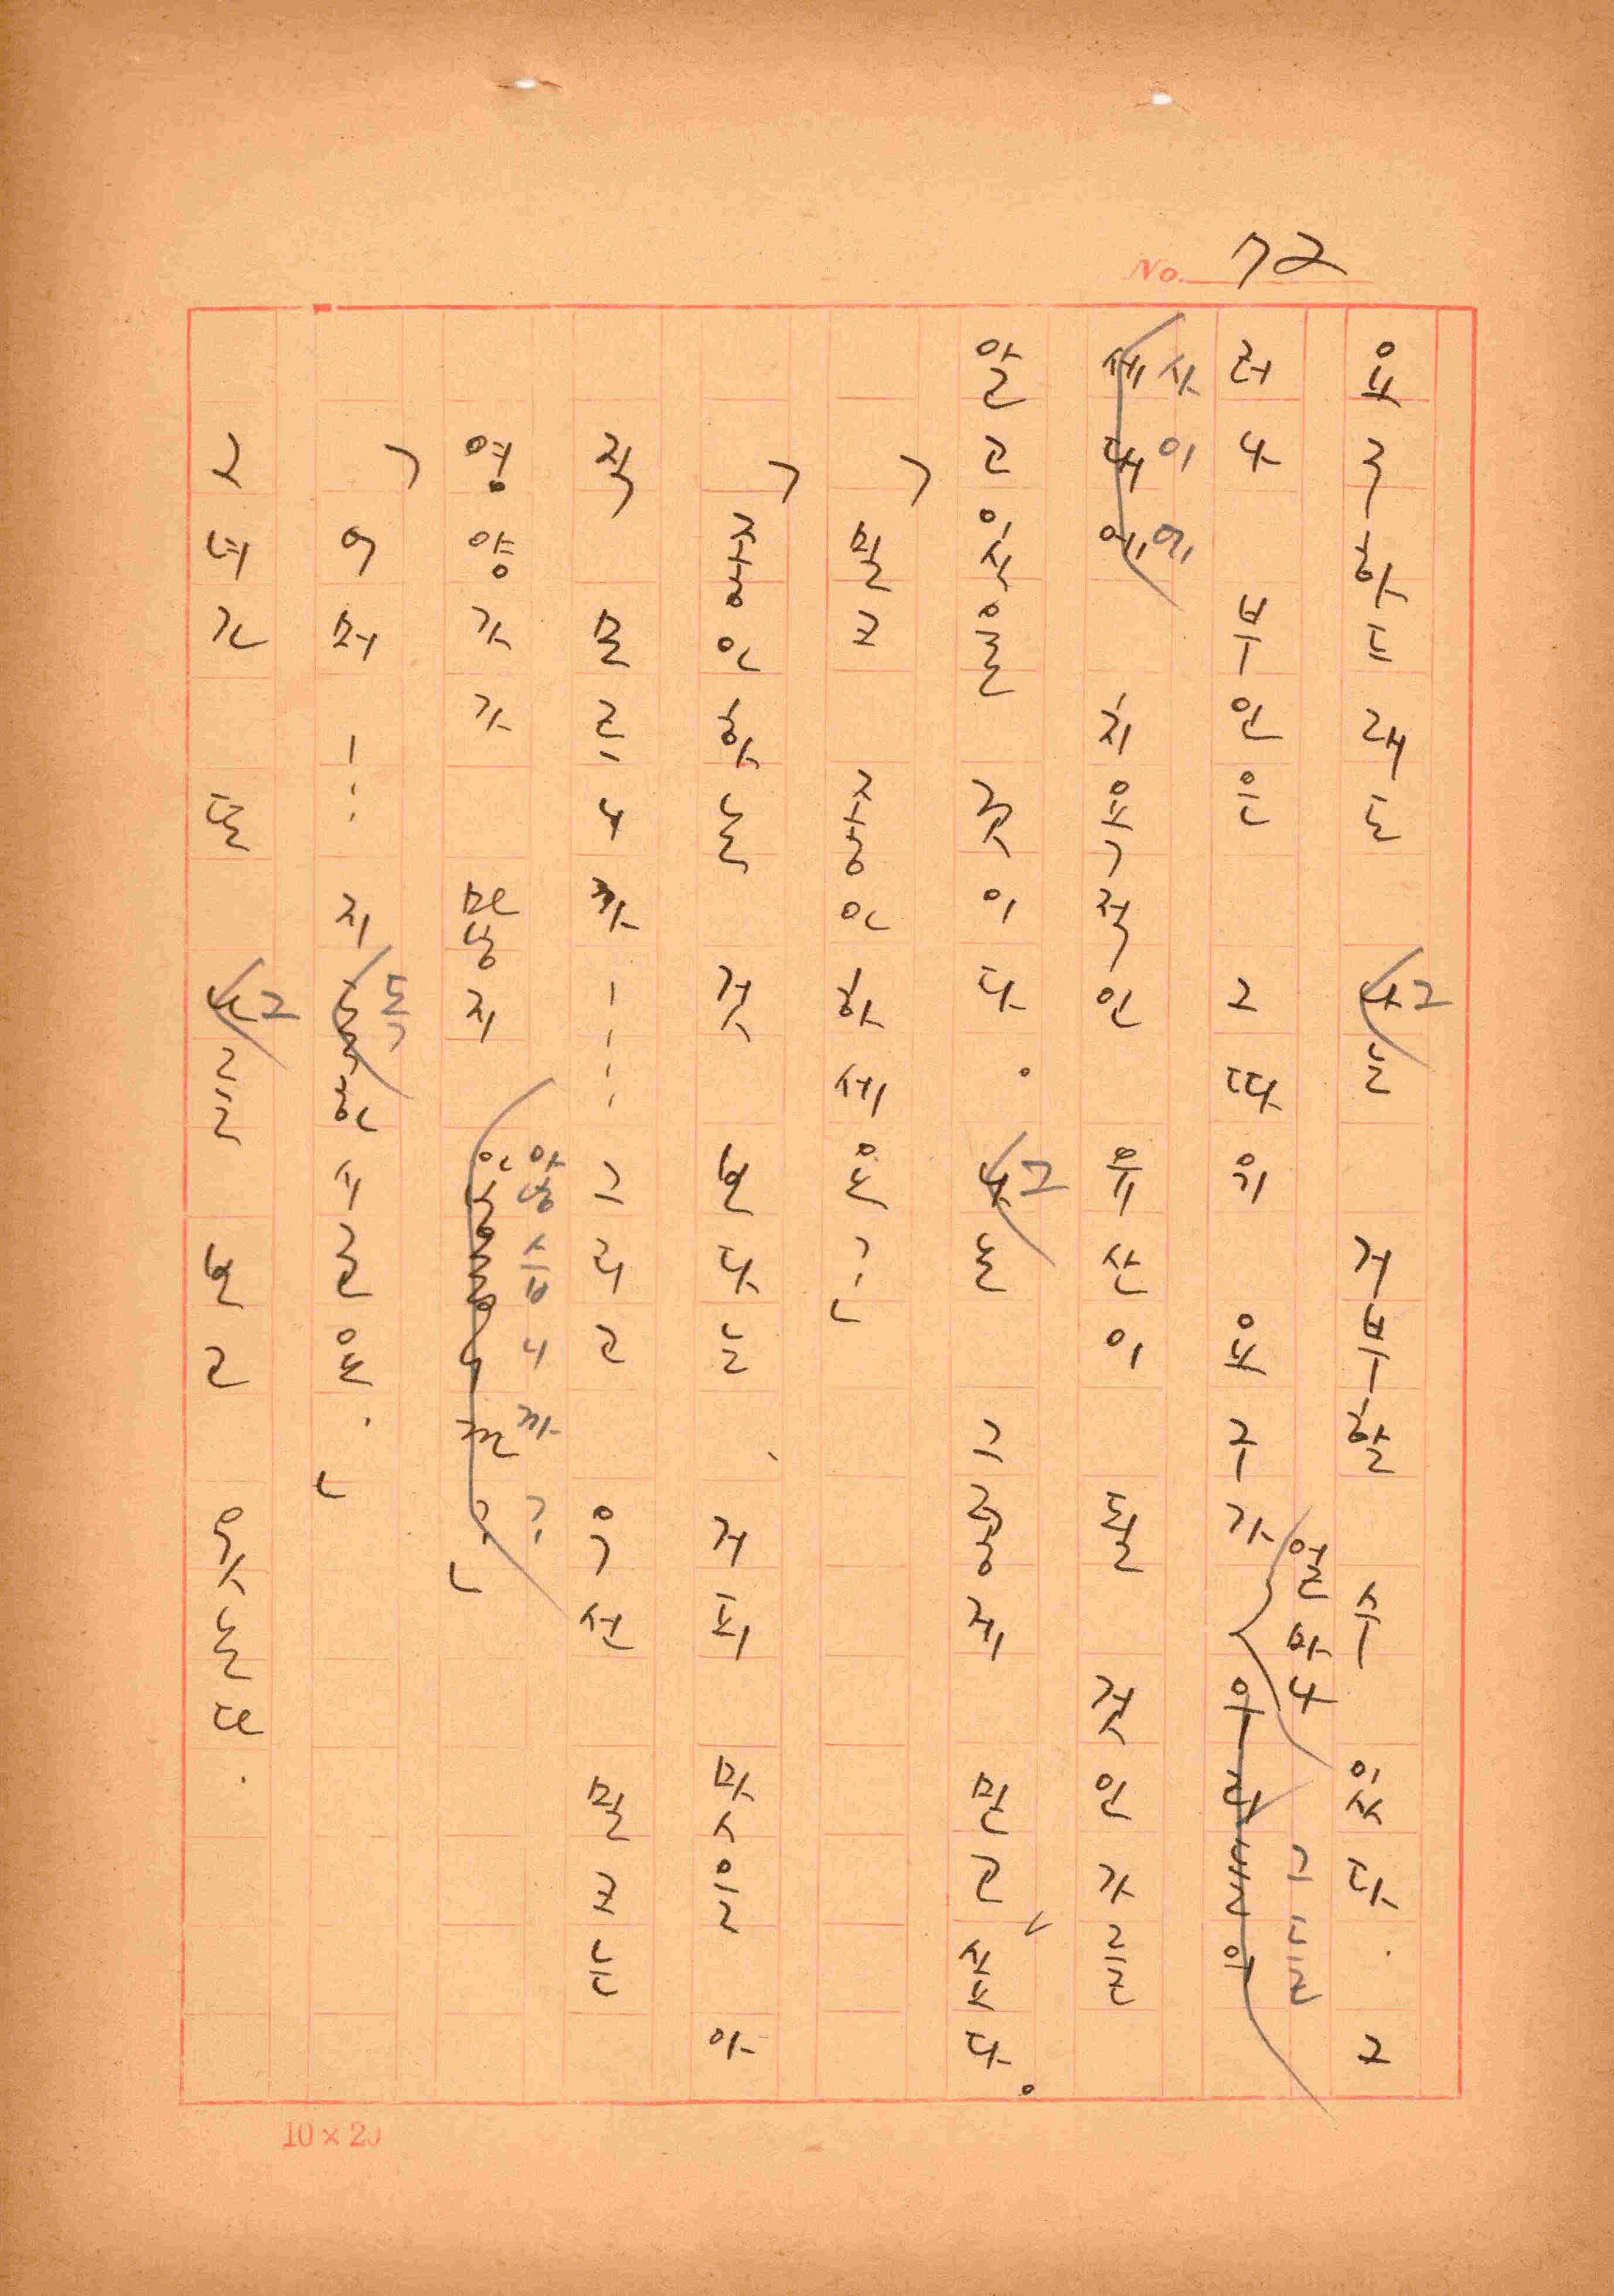 No. 72
요구하드래도 나그는 거부할 수 있다. 그
러나 부인은 그따위 요구가 얼마나 우리들의 그들
세대에 사이에 치욕적인 유산이 될 것인가를
알고 있을 것이다. 나그는 그렇게 믿고 싶다.
「밀크 중인하세온?」
「중인핫는 것 보다는, 거피 맛을 아
직 모르니까…… 그리고 우선 밀크는
영양가가 만쵢지 안습니까?」
「어머…… 지독한 시골온.」
그녀가 또 나그를 보고 웃는다.
10×20